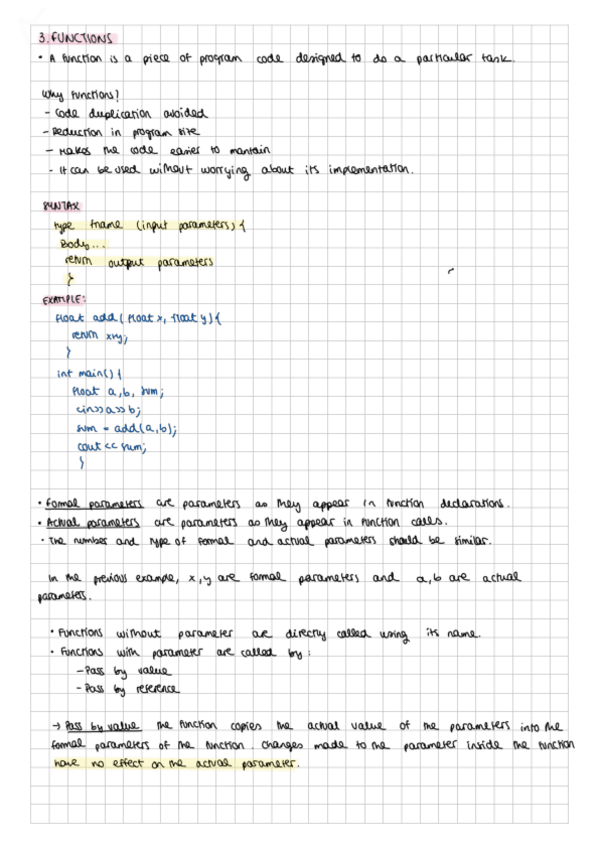 3. FUNCTIONS
• A function is a piece of program code designed to do a particular task.
Why functions?
- Code duplication avoided
- Reduction in program size
- Makes the code easier to mantain
- It can be used without worrying about its implementation.
SYNTAX
type fname (input parameters) {
Body...
return output parameters
}
EXAMPLE:
float add( float x, float y){
return x+y;
}
int main() {
float a, b, sum;
cin>>a>>b;
sum = add(a,b);
cout << sum;
}
• Formal parameters are parameters as they appear in function declarations.
• Actual parameters are parameters as they appear in function calls.
• The number and type of formal and actual parameters should be similar.
In the previous example, x,y are formal parameters and a,b are actual
parameters.
• Functions without parameter are directly called using its name.
• Functions with parameter are called by:
- Pass by value
- Pass by reference
→ Pass by value the function copies the actual value of the parameters into the
formal parameters of the function. Changes made to the parameter inside the function
have no effect on the actual parameter.